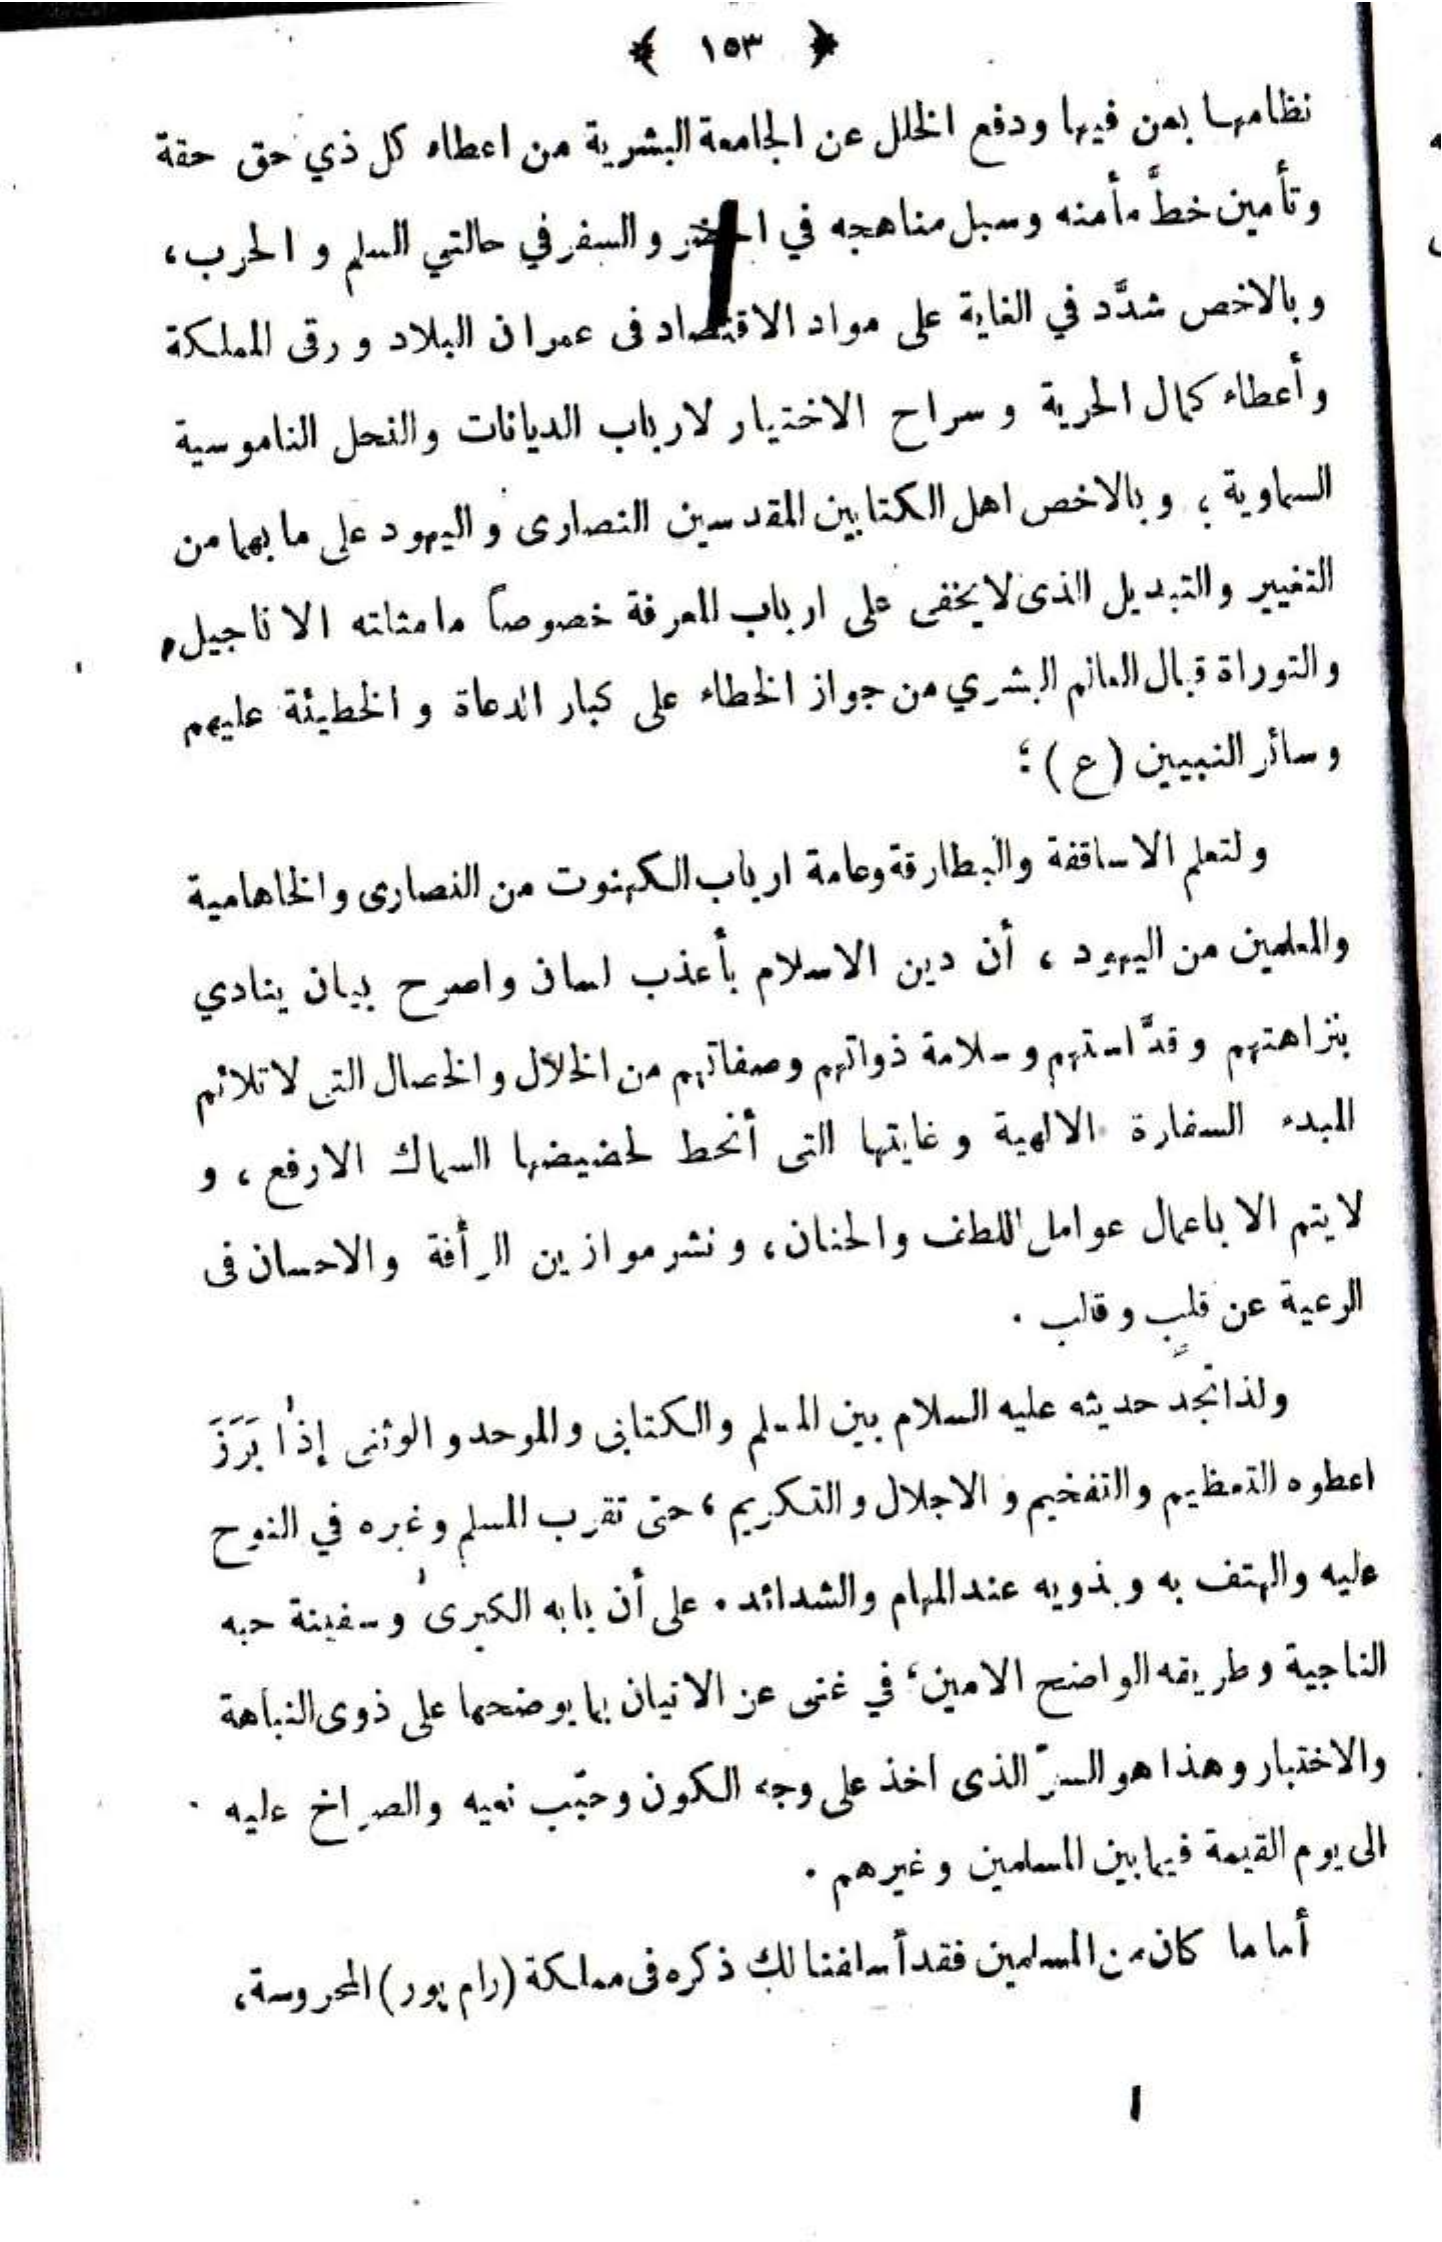 ١٥٣
نظامها بمن فيها ودفع الخلل عن الجامعة البشرية من اعطاء كل ذي حق حقة
وتأمين خطَّ مأمنه وسبل مناهجه في الحضر والسفر في حالتي السلم و الحرب،
وبالاخص شدَّد في الغاية على مواد الاقتصاد فى عمران البلاد و رقى المملكة
وأعطاء كمال الحرية و سراح الاختيار لارباب الديانات والنحل الناموسية
السماوية ؛ وبالاخص اهل الكتابين المقدسين النصارى و اليهود على ما بهما من
التغيير والتبديل الذى لا يخفى على ارباب المعرفة خصوصاً ما مثلته الاناجيل
والتوراة قبال العالم البشري من جواز الخطاء على كبار الدعاة و الخطيئة عليهم
وسائر النبيين (ع) ؛
ولتعلم الاساقفة والبطارقة وعامة ارباب الكهنوت من النصارى والخاهامية
والمعلمين من اليهود ، أن دين الاسلام بأعذب لسان واصرح بيان ينادي
بنزاهتهم وقدَّاستهم وسلامة ذواتهم وصفاتهم من الخلال والخصال التى لا تلائم
المبدء السفارة الالهية وغايتها التى أنحط لحضيضها السماك الارفع ، و
لا يتم الا باعمال عوامل اللطف والحنان ، ونشر موازين الرأفة والاحسان فى
الرعية عن قلبٍ وقالب .
ولذا تجد حديثه عليه السلام بين المسلم والكتابى والموحد و الوثنى إذا بَرَزَ
اعطوه التعظيم والتفخيم و الاجلال والتكريم ، حتى تقرب المسلم وغيره في النوح
عليه والهتف به وبذويه عند المهام والشدائد . على أن بابه الكبرى وسفينة حبه
الناجية وطريقه الواضح الامين ؛ في غنى عن الاتيان بما يوضحها على ذوى النباهة
والاختبار وهذا هو السرّ الذى اخذ على وجه الكون وحبّب نعيه والصراخ عليه
الى يوم القيمة فيما بين المسلمين وغيرهم .
أما ما كان من المسلمين فقد أسلفنا لك ذكره فى مملكة (رام پور) المحروسة،